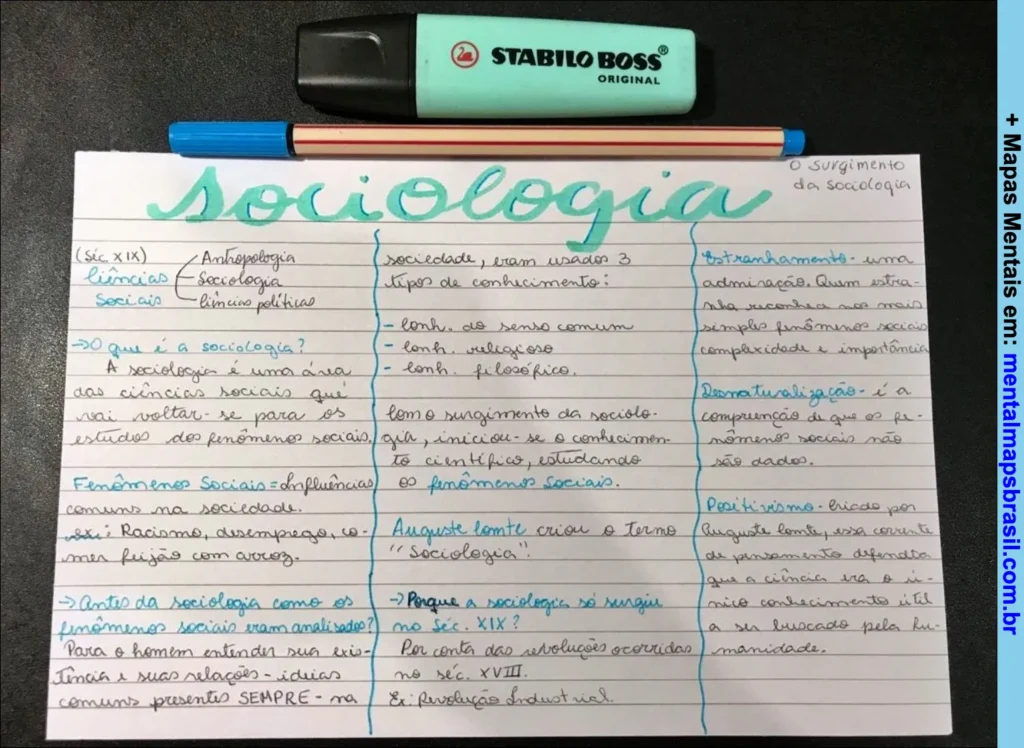 STABILO BOSS®
ORIGINAL
O surgimento
da sociologia
sociologia
(Séc XIX)
Ciências
Sociais
Antropologia
Sociologia
Ciências políticas
→O que é a sociologia?
A sociologia é uma área
das ciências sociais que
vai voltar-se para os
estudos dos fenômenos sociais.
Fenômenos Sociais = Influências
comuns na sociedade.
ex: Racismo, desemprego, co-
mer feijão com arroz.
→Antes da sociologia como os
fenômenos sociais eram analisados?
Para o homem entender sua exis-
tência e suas relações - ideias
comuns presentes SEMPRE - na
sociedade, eram usados 3
tipos de conhecimento:
- Conh. do senso comum
- Conh. religioso
- Conh. filosófico.
Com o surgimento da sociolo-
gia, iniciou-se o conhecimen-
to científico, estudando
os fenômenos sociais.
Auguste Comte criou o termo
"Sociologia".
→Porque a sociologia só surgiu
no Séc. XIX?
Por conta das revoluções ocorridas
no séc. XVIII.
Ex: Revolução Industrial.
Estranhamento - uma
adminação. Quem estra-
nha reconhece nos mais
simples fenômenos sociais
complexidade e importância
Desnaturalização - é a
compreenção de que os fe-
nômenos sociais não
são dados.
Positivismo - Criado por
Auguste Comte, essa corrente
de pensamento defendia
que a ciência era o ú-
nico conhecimento útil
a ser buscado pela hu-
manidade.
+ Mapas Mentais em: mentalmapsbrasil.com.br